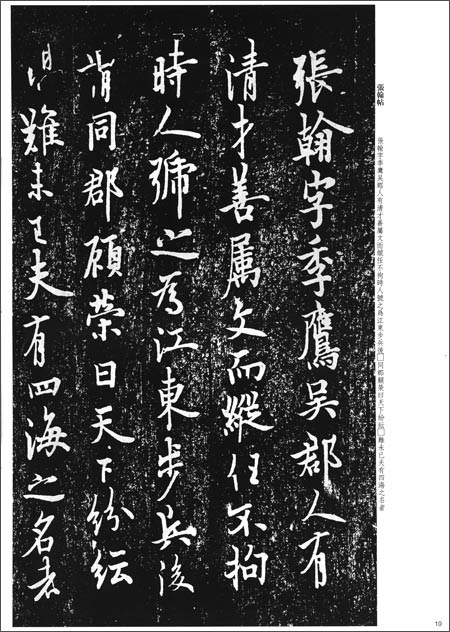 張翰帖
張翰字季鷹吳郡人有清才善屬文而縱任不拘時人號之爲江東步兵後□同郡顧榮曰天下紛紜□難未已夫有四海之名者
張翰字季鷹吳郡人有
清才善属文而縱任不拘
時人號之為江東步兵後
同郡顧榮曰天下紛紜
難未已夫有四海之名者